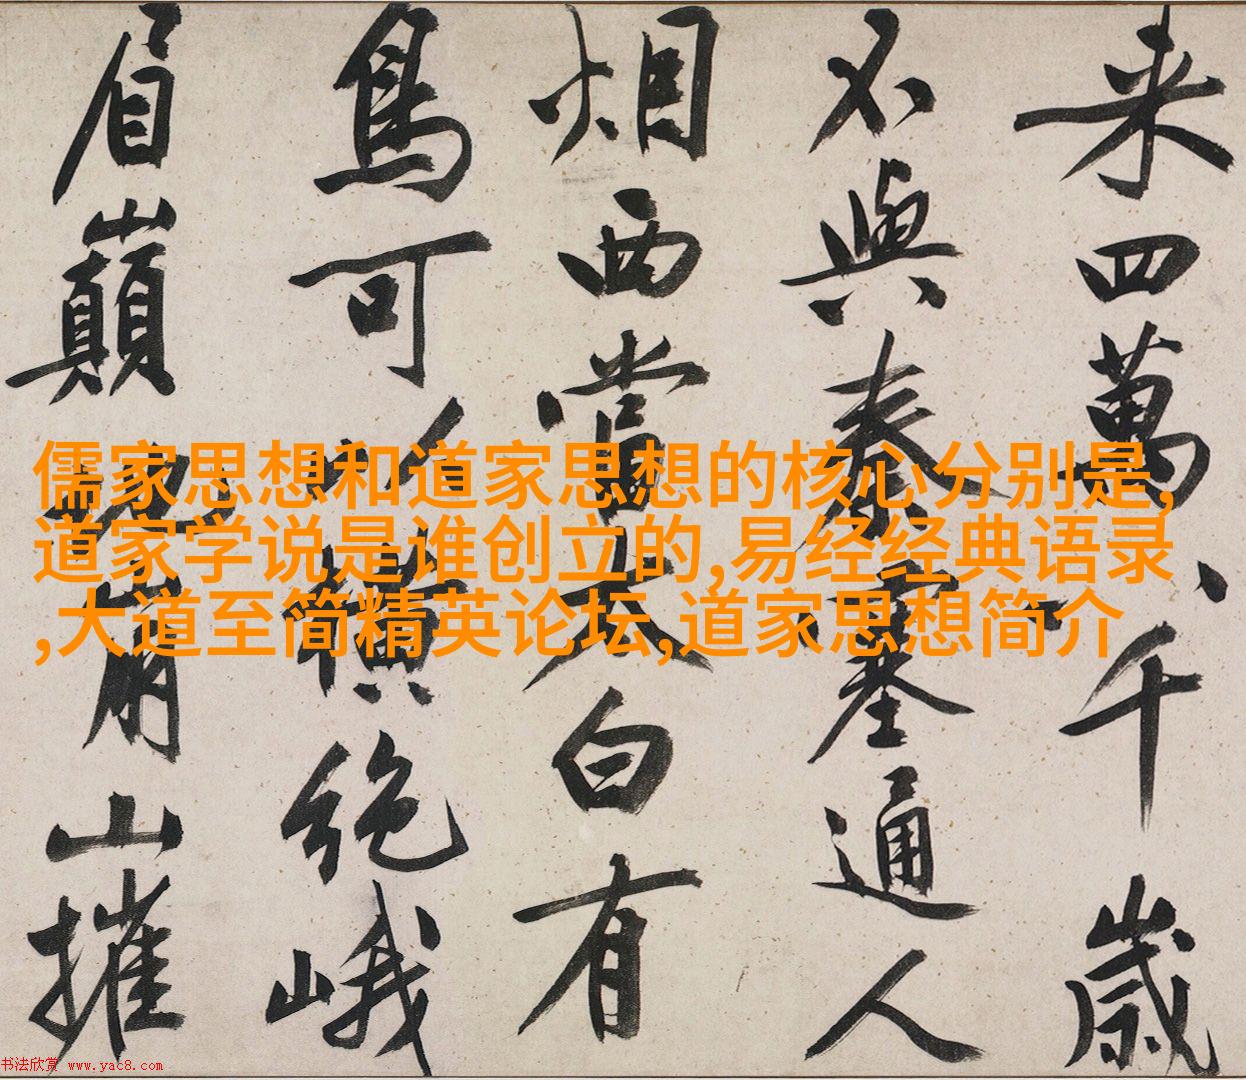 来四萬八千歲
不與秦塞通人
烟西當太白有
鳥可以橫絶峨
眉巔地崩山摧
儒家思想和道家思想的核心分别是,
道家学说是谁创立的,易经经典语录
,大道至简精英论坛,道家思想简介
书法欣赏 www.yac8.com